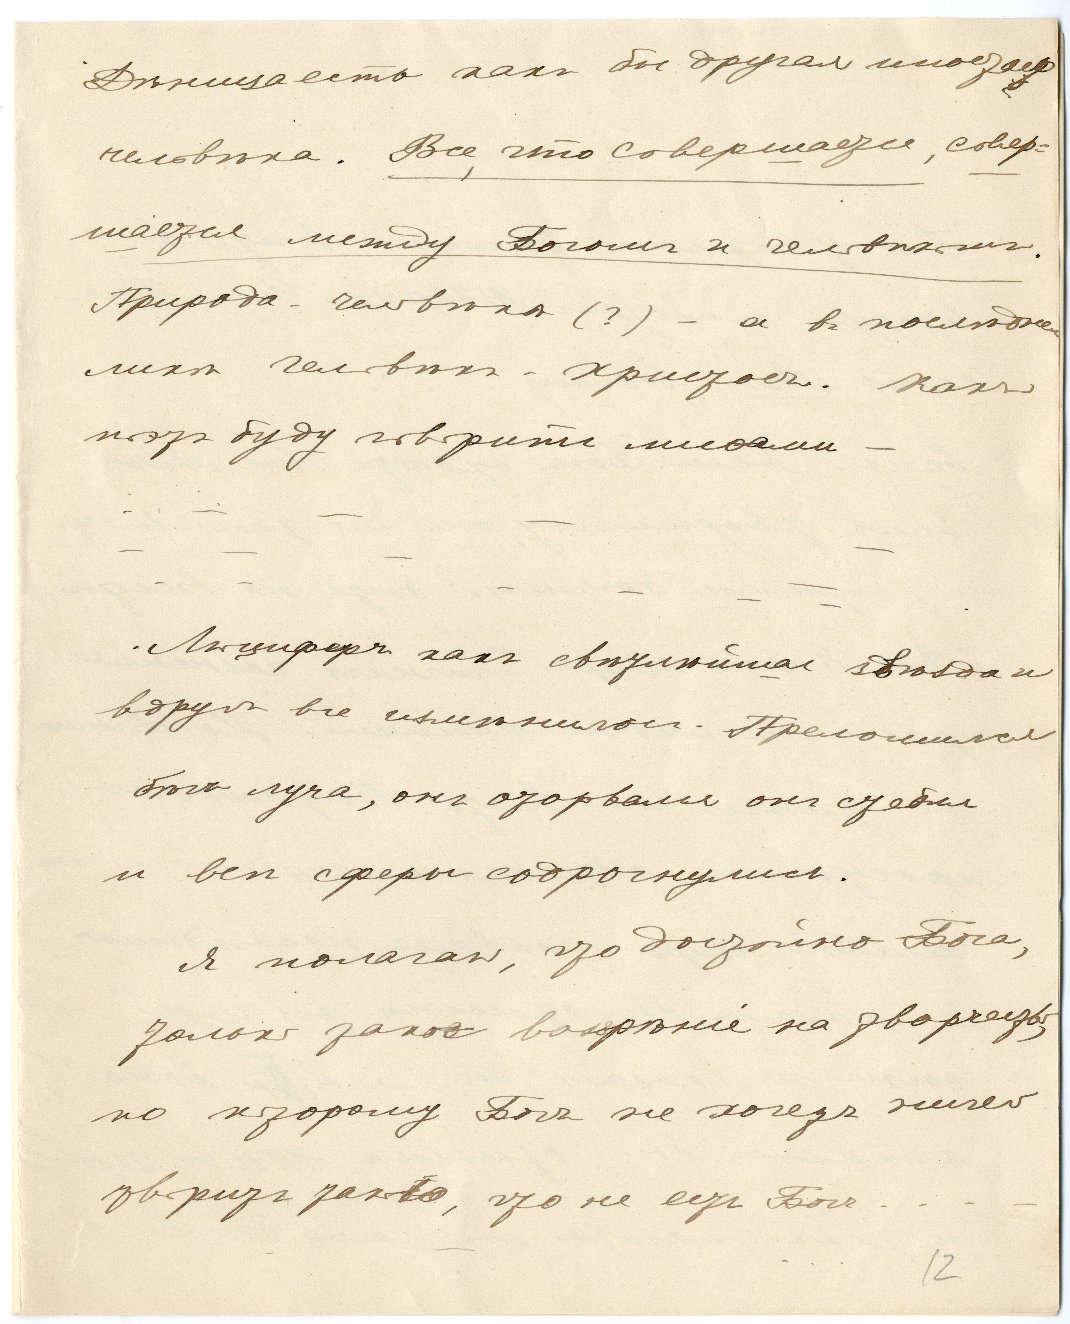 Дѣница есть какъ бы другая ипостась
человѣка. Все, что совершается, совер=
шается между Богомъ и человѣкомъ.
Природа - человѣкъ (?) – а въ послѣднем
ликѣ человѣкъ - Христосъ. Какъ
поэтъ буду говорить мифами –
Люциферъ какъ свѣтлѣйшая звѣзда и
вдругъ все измѣнилось. Преломился
бѣгъ луча, онъ оторвался онъ
и всѣ сферы содрогнулись.
Я полагаю, что достойно Бога,
только такое воззрѣніе на творчество,
по которому Богъ не хочетъ ничего
творить такого, что не есть Богъ . . . –
12